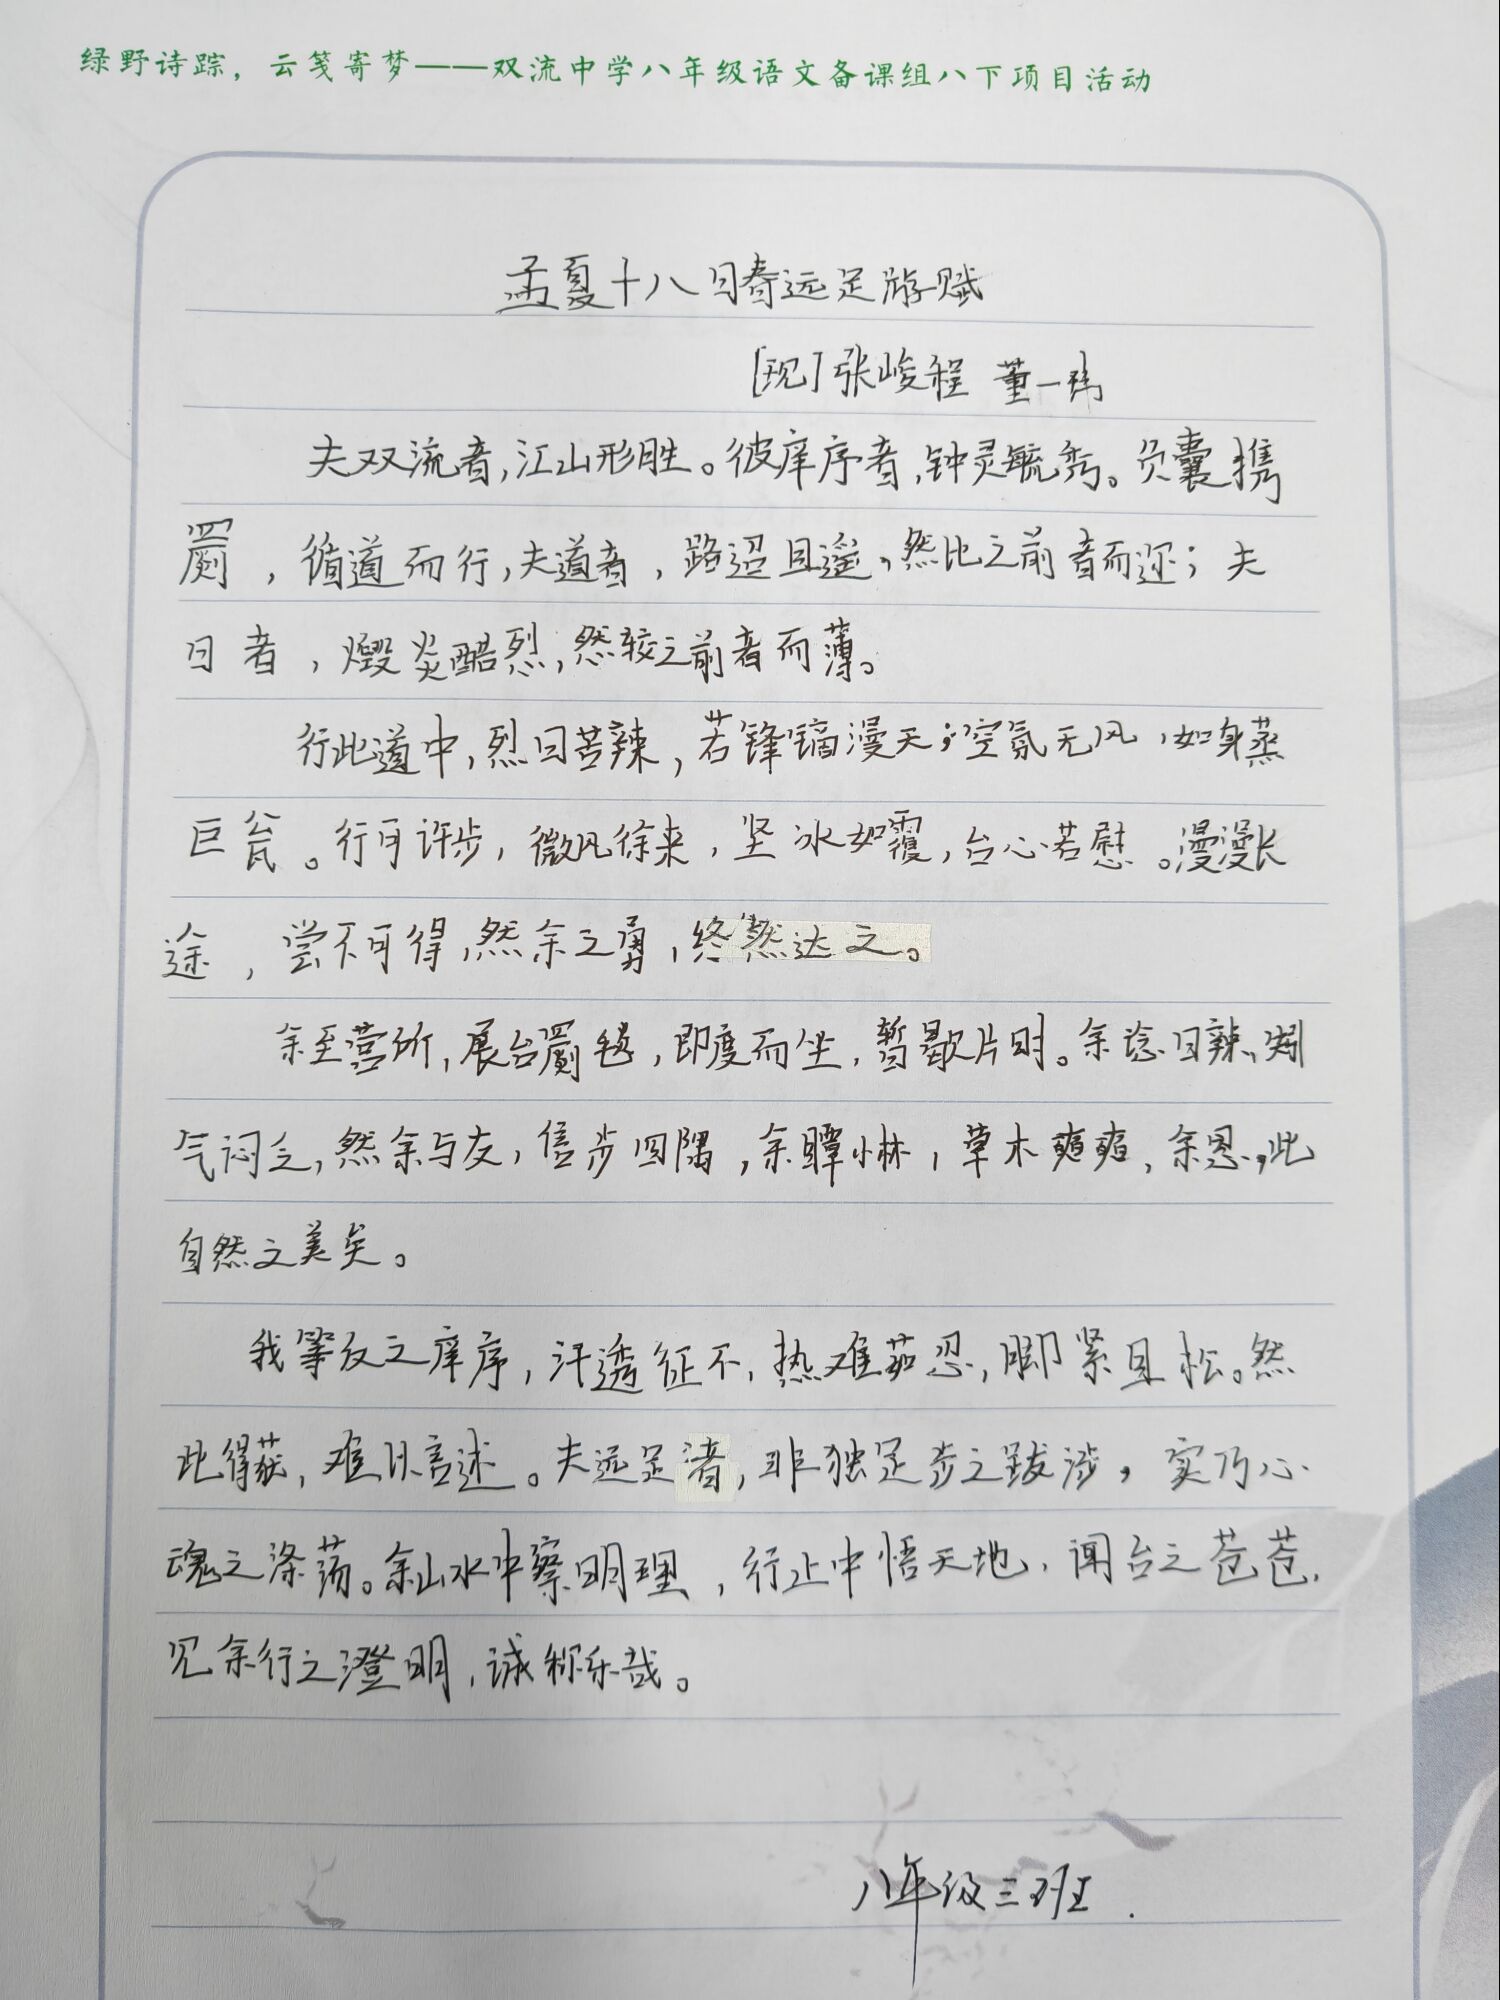 绿野诗踪，云笺寄梦——双流中学八年级语文备课组八下项目活动
孟夏十八日春远足游赋
[现]张峻程 董一玮
夫双流者，江山形胜。彼庠序者，钟灵毓秀。负囊携
罽，循道而行，夫道者，路迢且遥，然比之前者而迩；夫
日者，燬炎酷烈，然较之前者而薄。
行此道中，烈日苦辣，若锋镝漫天；空氛无风，如身蒸
巨瓮。行可许步，微风徐来，坚冰如覆，台心若慰。漫漫长
途，尝不可得，然余之勇，终然达之。
余至营所，展台罽毯，即度而坐，暂歇片时。余谂日辣，
气闷之，然余与友，信步四隅，余瞟小林，草木奭奭，余恩，此
自然之美矣。
我等反之庠序，汗透征不，热难茹忍，脚紧且松。然
此得获，难以言述。夫远足者，非独足步之跋涉，实乃心
魂之涤荡。余山水中察明理，行止中悟天地，闻台之苍苍，
见余行之澄明，诚称乐哉。
八年级三班.